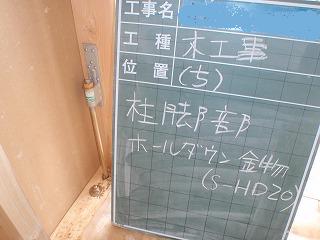 工事名
工種 木工事
位置 (ち)
柱脚部
ホールダウン金物
(S-HD20)